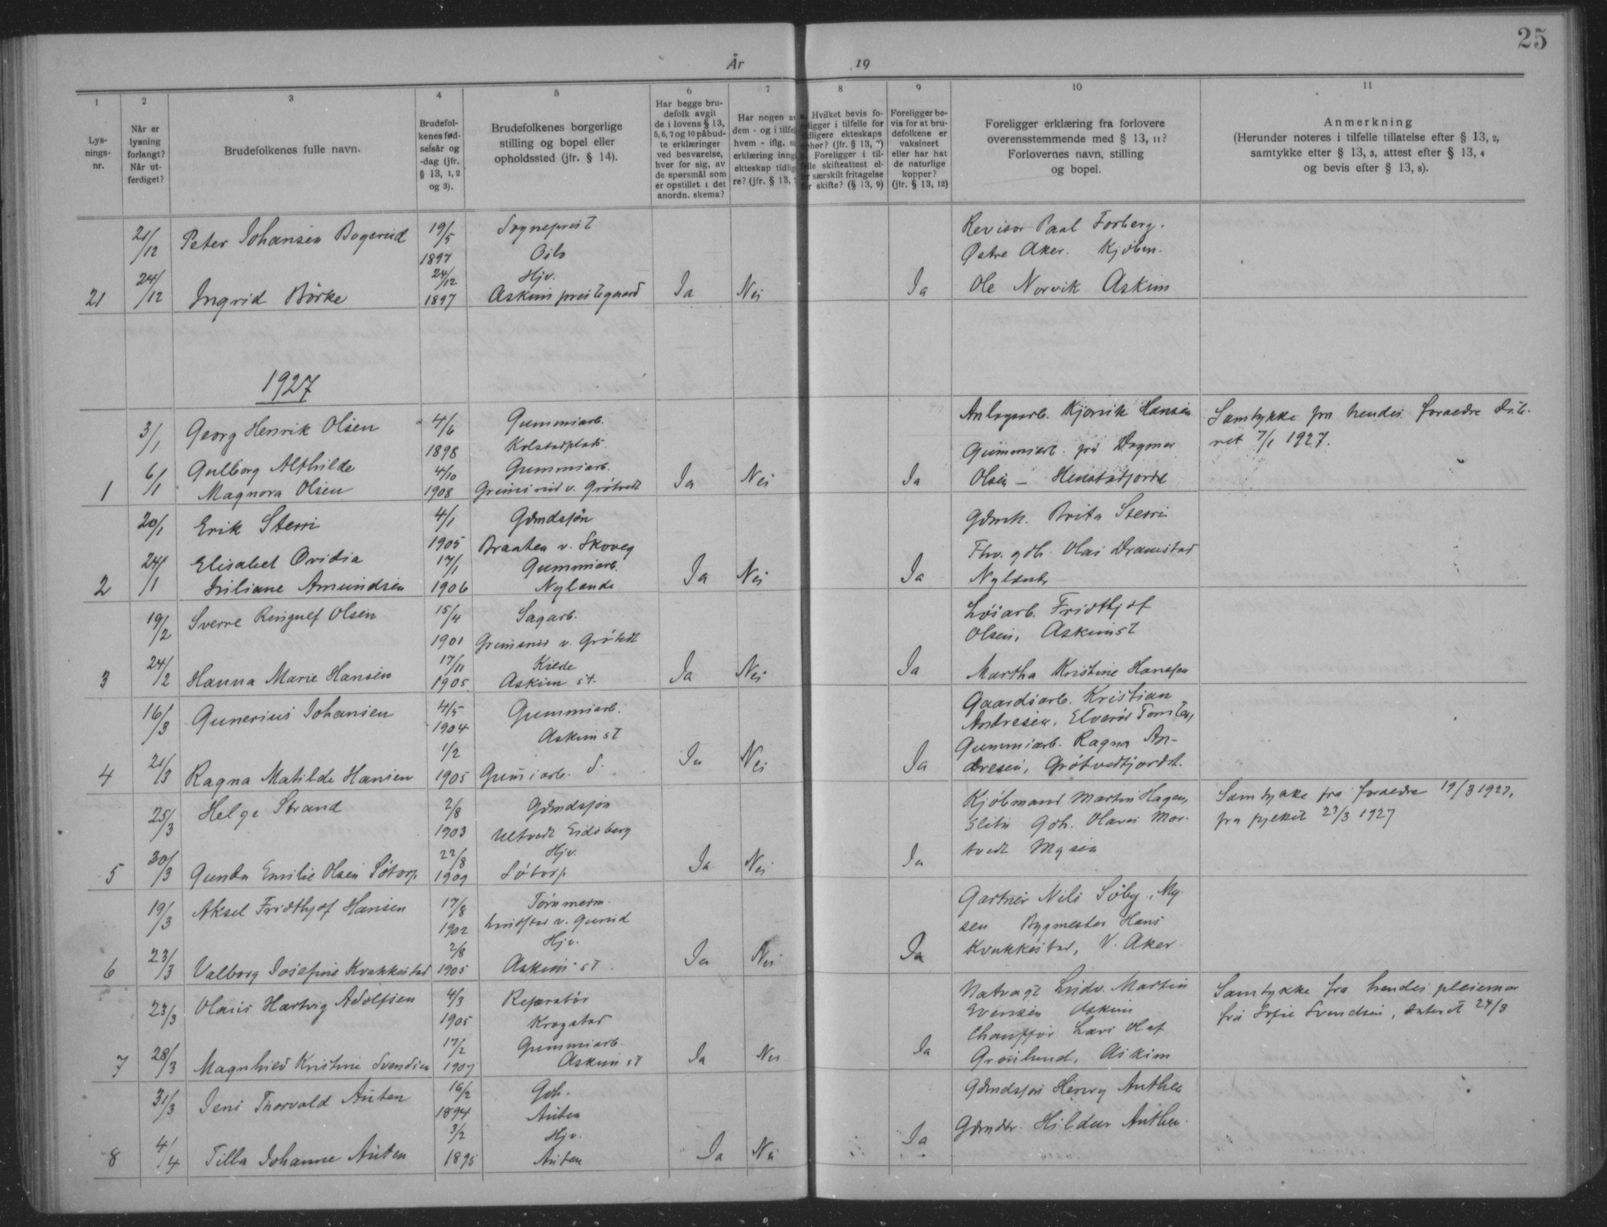 25
År 19
1 2 3 4 5 6 7 8 9 10 11
Lys-
nings-
nr.
Når er
lysning
forlangt?
Når ut-
ferdiget?
Brudefolkenes fulle navn.
Brudefol-
kenes fød-
selsår og
-dag (jfr.
§ 13, 1, 2
og 3).
Brudefolkenes borgerlige
stilling og bopel eller
opholdssted (jfr. § 14).
Har begge bru-
defolk avgit
de i lovens § 13,
5, 6, 7 og 10 påbud-
te erklæringer
ved besvarelse,
hver for sig, av
de spørsmål som
er opstillet i det
anordn. skema?
Har nogen a
dem - og i tilfe
hvem - iflg.
erklæring inng
ekteskap tidlig
re? (jfr. § 13,
Hvilket bevis fo-
ligger i tilfelle for
tidligere ekteskaps
ophør? (jfr. § 13, 7)
Foreligger i til-
felle skifteattest el-
særskilt fritagelse
for skifte? (§ 13, 9)
Foreligger be-
vis for at bru-
defolkene er
vaksinert
eller har hat
de naturlige
kopper?
(jfr. § 13, 12)
Foreligger erklæring fra forlovere
overensstemmende med § 13, 11?
Forlovernes navn, stilling
og bopel.
Anmerkning
(Herunder noteres i tilfelle tillatelse efter § 13, 2,
samtykke efter § 13, 3, attest efter § 13, 4
og bevis efter § 13, 8).
21/12 Peter Johansen Bogerud 19/5 1897 Sogneprest
Oslo
Revisor Paal Forberg.
Østre Aker. Kjøbm.
21 24/12 Ingrid Børke 24/12 1897 Hjv.
Askim prestegaard Ja Nei Ja Ole Norvik Askim
1927
3/1 Georg Henrik Olsen 4/6 1898 Gummiarb.
Kolstadplads
Anlegsarb. Kjørvik Hansen
Samtykke fra hendes foraedre
7/1 1927.
1 6/1 Gulborg Alfhilde
Magnora Olsen 4/10 1908 Gummiarb.
Grimsrud v. Grøtvedt Ja Nei Ja
Gummiarb. Dagmar
Olsen —
20/1 Erik Sterri 4/1 1905 Gdmdsøn
Braaten v. Skoveg
Gdmk. Brita Sterri
2 24/1 Elisabet Ovidia
Juliane Amundsen 17/1 1906 Gummiarb.
Nylende Ja Nei Ja
Fhv. gdb. Olai Dramstad
Nylende
19/2 Sverre Ringulf Olsen 15/4 1901 Sagarb.
Grimsrud v. Grøtvedt
Løsarb. Fridthjof
Olsen, Askim st
3 24/2 Hanna Marie Hansen 17/11 1905
Askim st. Ja Nei Ja Martha Kristine Hansen
16/3 Gunerius Johansen 4/5 1904 Gummiarb.
Askim st
Gaardsarb. Kristian
Andresen,
4 21/3 Ragna Matilde Hansen 1/2 1905 Gumiarb. Ja Nei Ja
Gummiarb. Ragna An-
dresen, Grøtvedtjordet.
25/3 Helge Strand 2/8 1903 Gdmdsøn
Ultvedt Eidsberg
Kjøbmand Martin Hagen,
Slitu Gdb. Olaves Mor-
tvedt Mysen
Samtykke fra foraedre 19/3 1927,
fra fylket 22/3 1927
5 30/3 Gunda Emilie Olsen Søtorp 22/8 1909 Hjv.
Søtorp Ja Nei Ja
19/3 Aksel Fridthjof Hansen 17/8 1902 Tømmerm.
Gartner Nils Søby, My-
sen Bygmester Hans
Kvakkestad, V. Aker
6 23/3 Valborg Josefine Kvakkestad 2/8 1905 Hjv.
Askim st. Ja Nei Ja
23/3 Olaus Hartvig Adolfsen 4/3 1905 Reparatør
Krogstad
Natvagt Ludv. Martin
Evensen Askim
Chauffør Lars Olaf
Grønlund, Askim
Samtykke fra hendes pleiemor
fru Sofie Svendsen, datert 24/3
7 28/3 Magnhild Kristine Svendsen 17/2 1907 Gummiarb.
Askim st Ja Nei Ja
31/3 Jens Thorvald Auten 16/2 1894 Gdb.
Auten
Gdmdsøn Henry Authen
Gdmdtr. Hildur Authen.
8 4/4 Tilla Johanne Auten 3/2 1895 Hjv.
Auten Ja Nei Ja